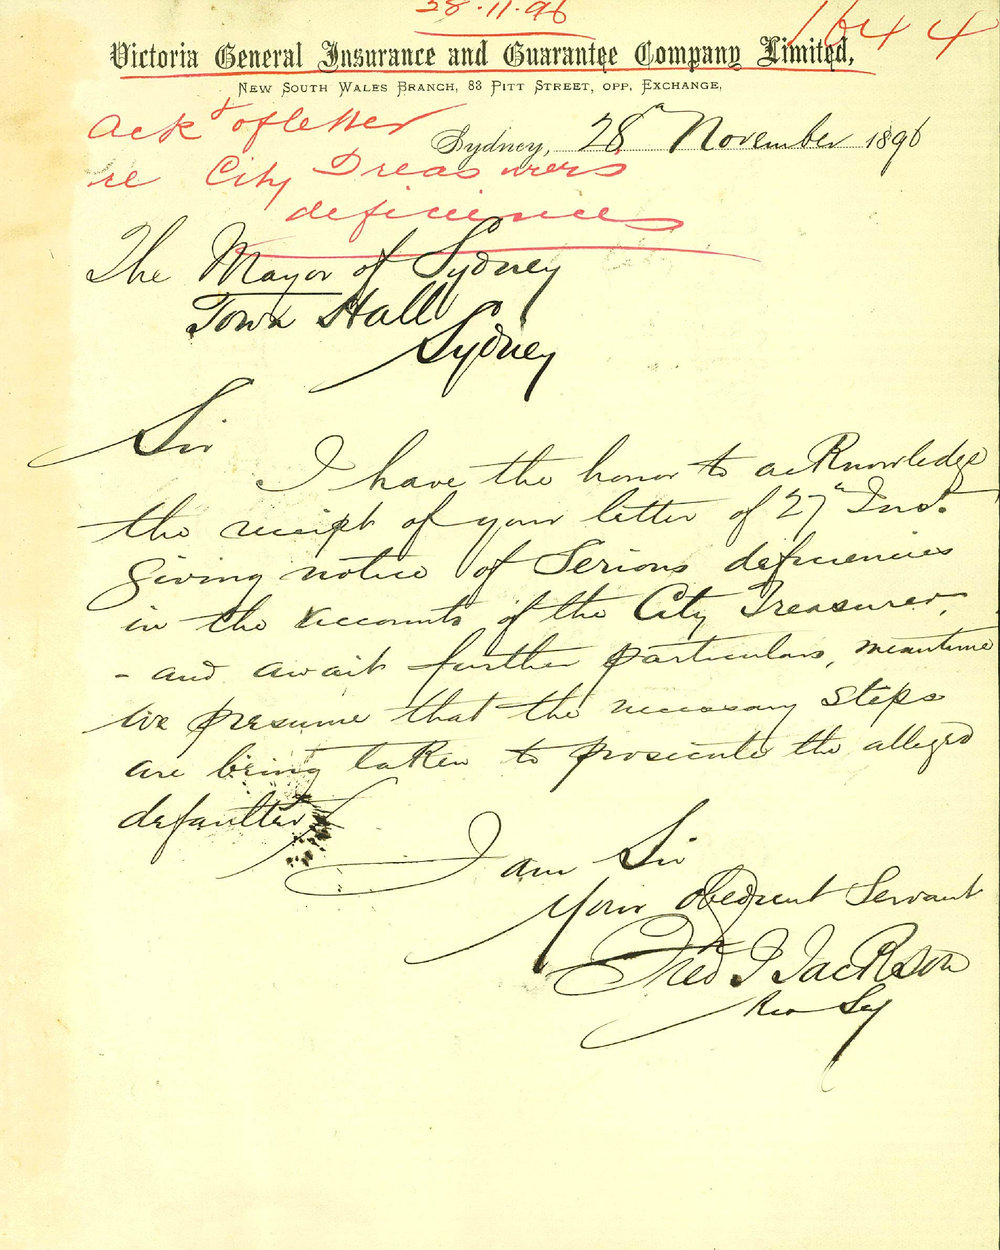 28·11·96
1644
Victoria General Insurance and Guarantee Company Limited,
New South Wales Branch, 83 Pitt Street, opp. Exchange,
Ackt of letter
re City Treasurers
deficiencies
Sydney, 28th November 1896
The Mayor of Sydney
Town Hall
Sydney
Sir
I have the honor to acknowledge
the receipt of your letter of 27th Inst.
giving notice of Serious deficiencies
in the accounts of the City Treasurer,
- and await further particulars, meantime
we presume that the necessary steps
are being taken to prosecute the alleged
defaulter
I am Sir
Your Obedient Servant
Fred J Jackson
Res Sey